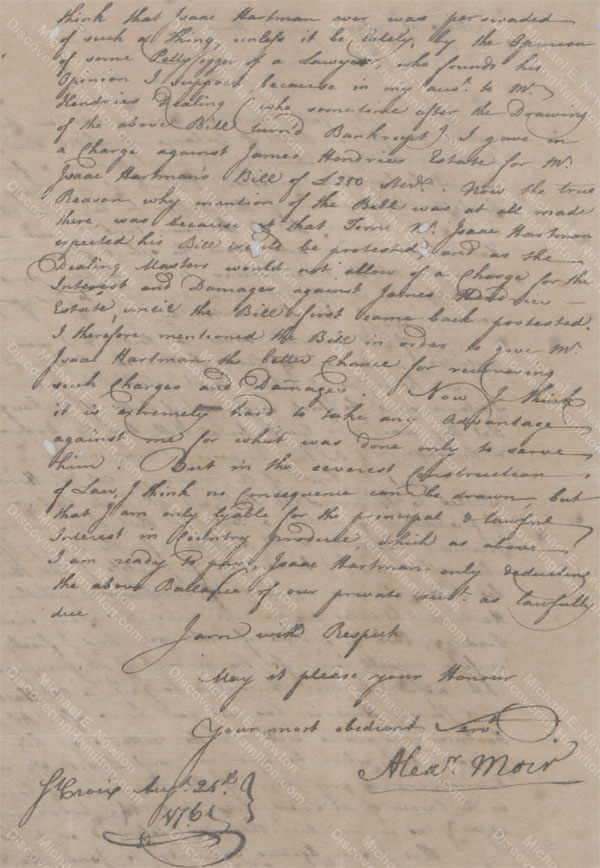 think that Isaac Hartman ever was perswaded
of such a Thing, unless it be lately, by the Opinion
of some Pettyfogger of a Lawyer, who founds his
Opinion I suppose because in my acct. to Mr.
Hendries Dealing (who sometime after the Drawing
of the above Bill turn'd Bankrupt) I gave in
a Charge against James Hendries Estate for Mr.
Isaac Hartman's Bill of £350 Sterl. Now the true
Reason why mention of the Bill was at all made
there, was because at that Time Mr. Isaac Hartman
expected his Bill would be protested, and as the
Dealing Masters would not allow of a Charge for the
Interest and Damages against James Hendries
Estate, until the Bill first came back protested.
I therefore mentioned the Bill in order to give Mr.
Isaac Hartman the better Chance for recovering
such Charges and Damages. Now I think
it is extremely hard to take any Advantage
against me for what was done only to serve
him. But in the severest Construction
of Law, I think no Consequence can be drawn, but
that I am only lyable for the principal & lawful
Interest in Country produce, which as above
I am ready to pay, Isaac Hartman only deducting
the above Ballance of our private acct. as lawfully
due.
I am with Respect
May it please your Honour
Your most obedient Servt.
Alexr. Moir
St Croix Augt. 28th
1761
Michael E. Newton
DiscoveringHamilton.com